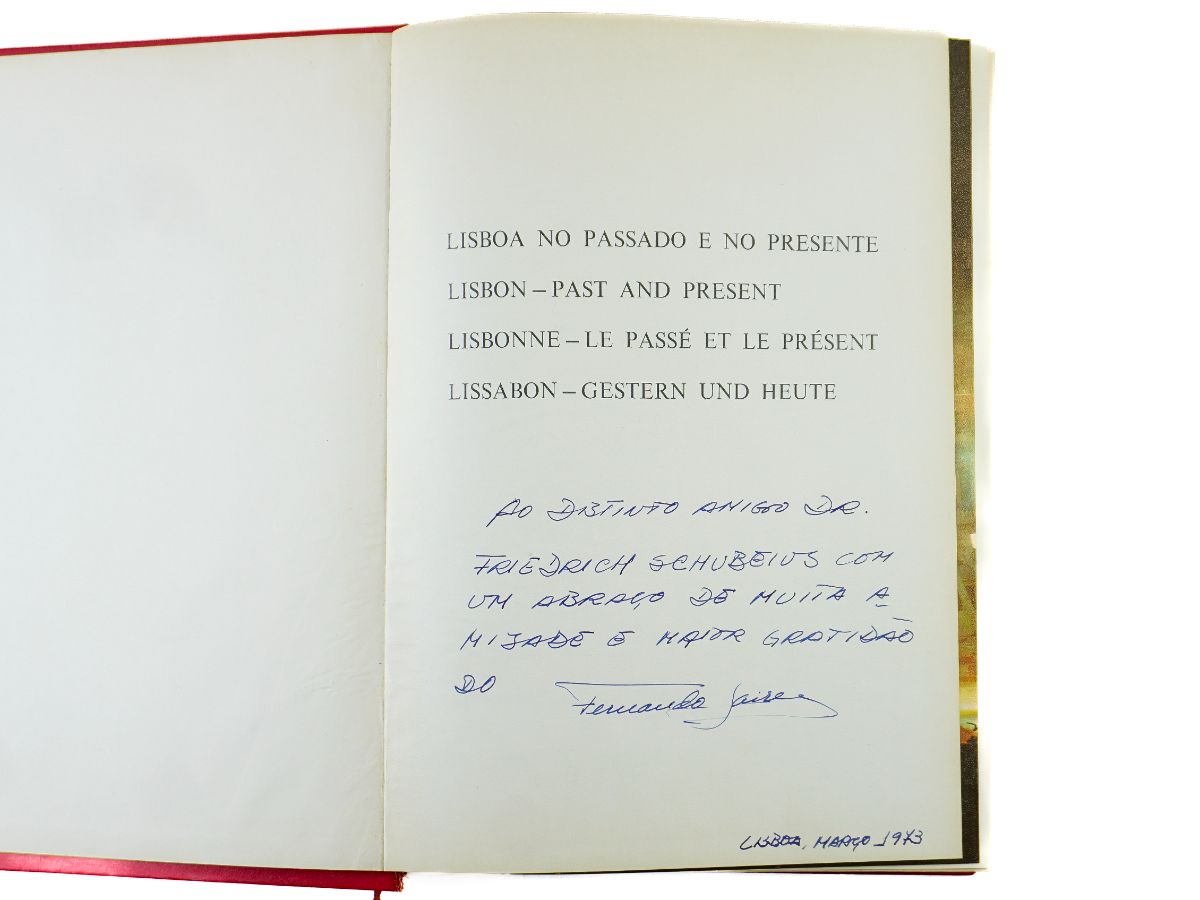 LISBOA NO PASSADO E NO PRESENTE
LISBON – PAST AND PRESENT
LISBONNE – LE PASSÉ ET LE PRÉSENT
LISSABON – GESTERN UND HEUTE
AO DISTINTO AMIGO DR.
FRIEDRICH SCHUBEIUS COM
UM ABRAÇO DE MUITA A-
MIZADE E MAIOR GRATIDÃO
DO Fernando
LISBOA, MARÇO 1973